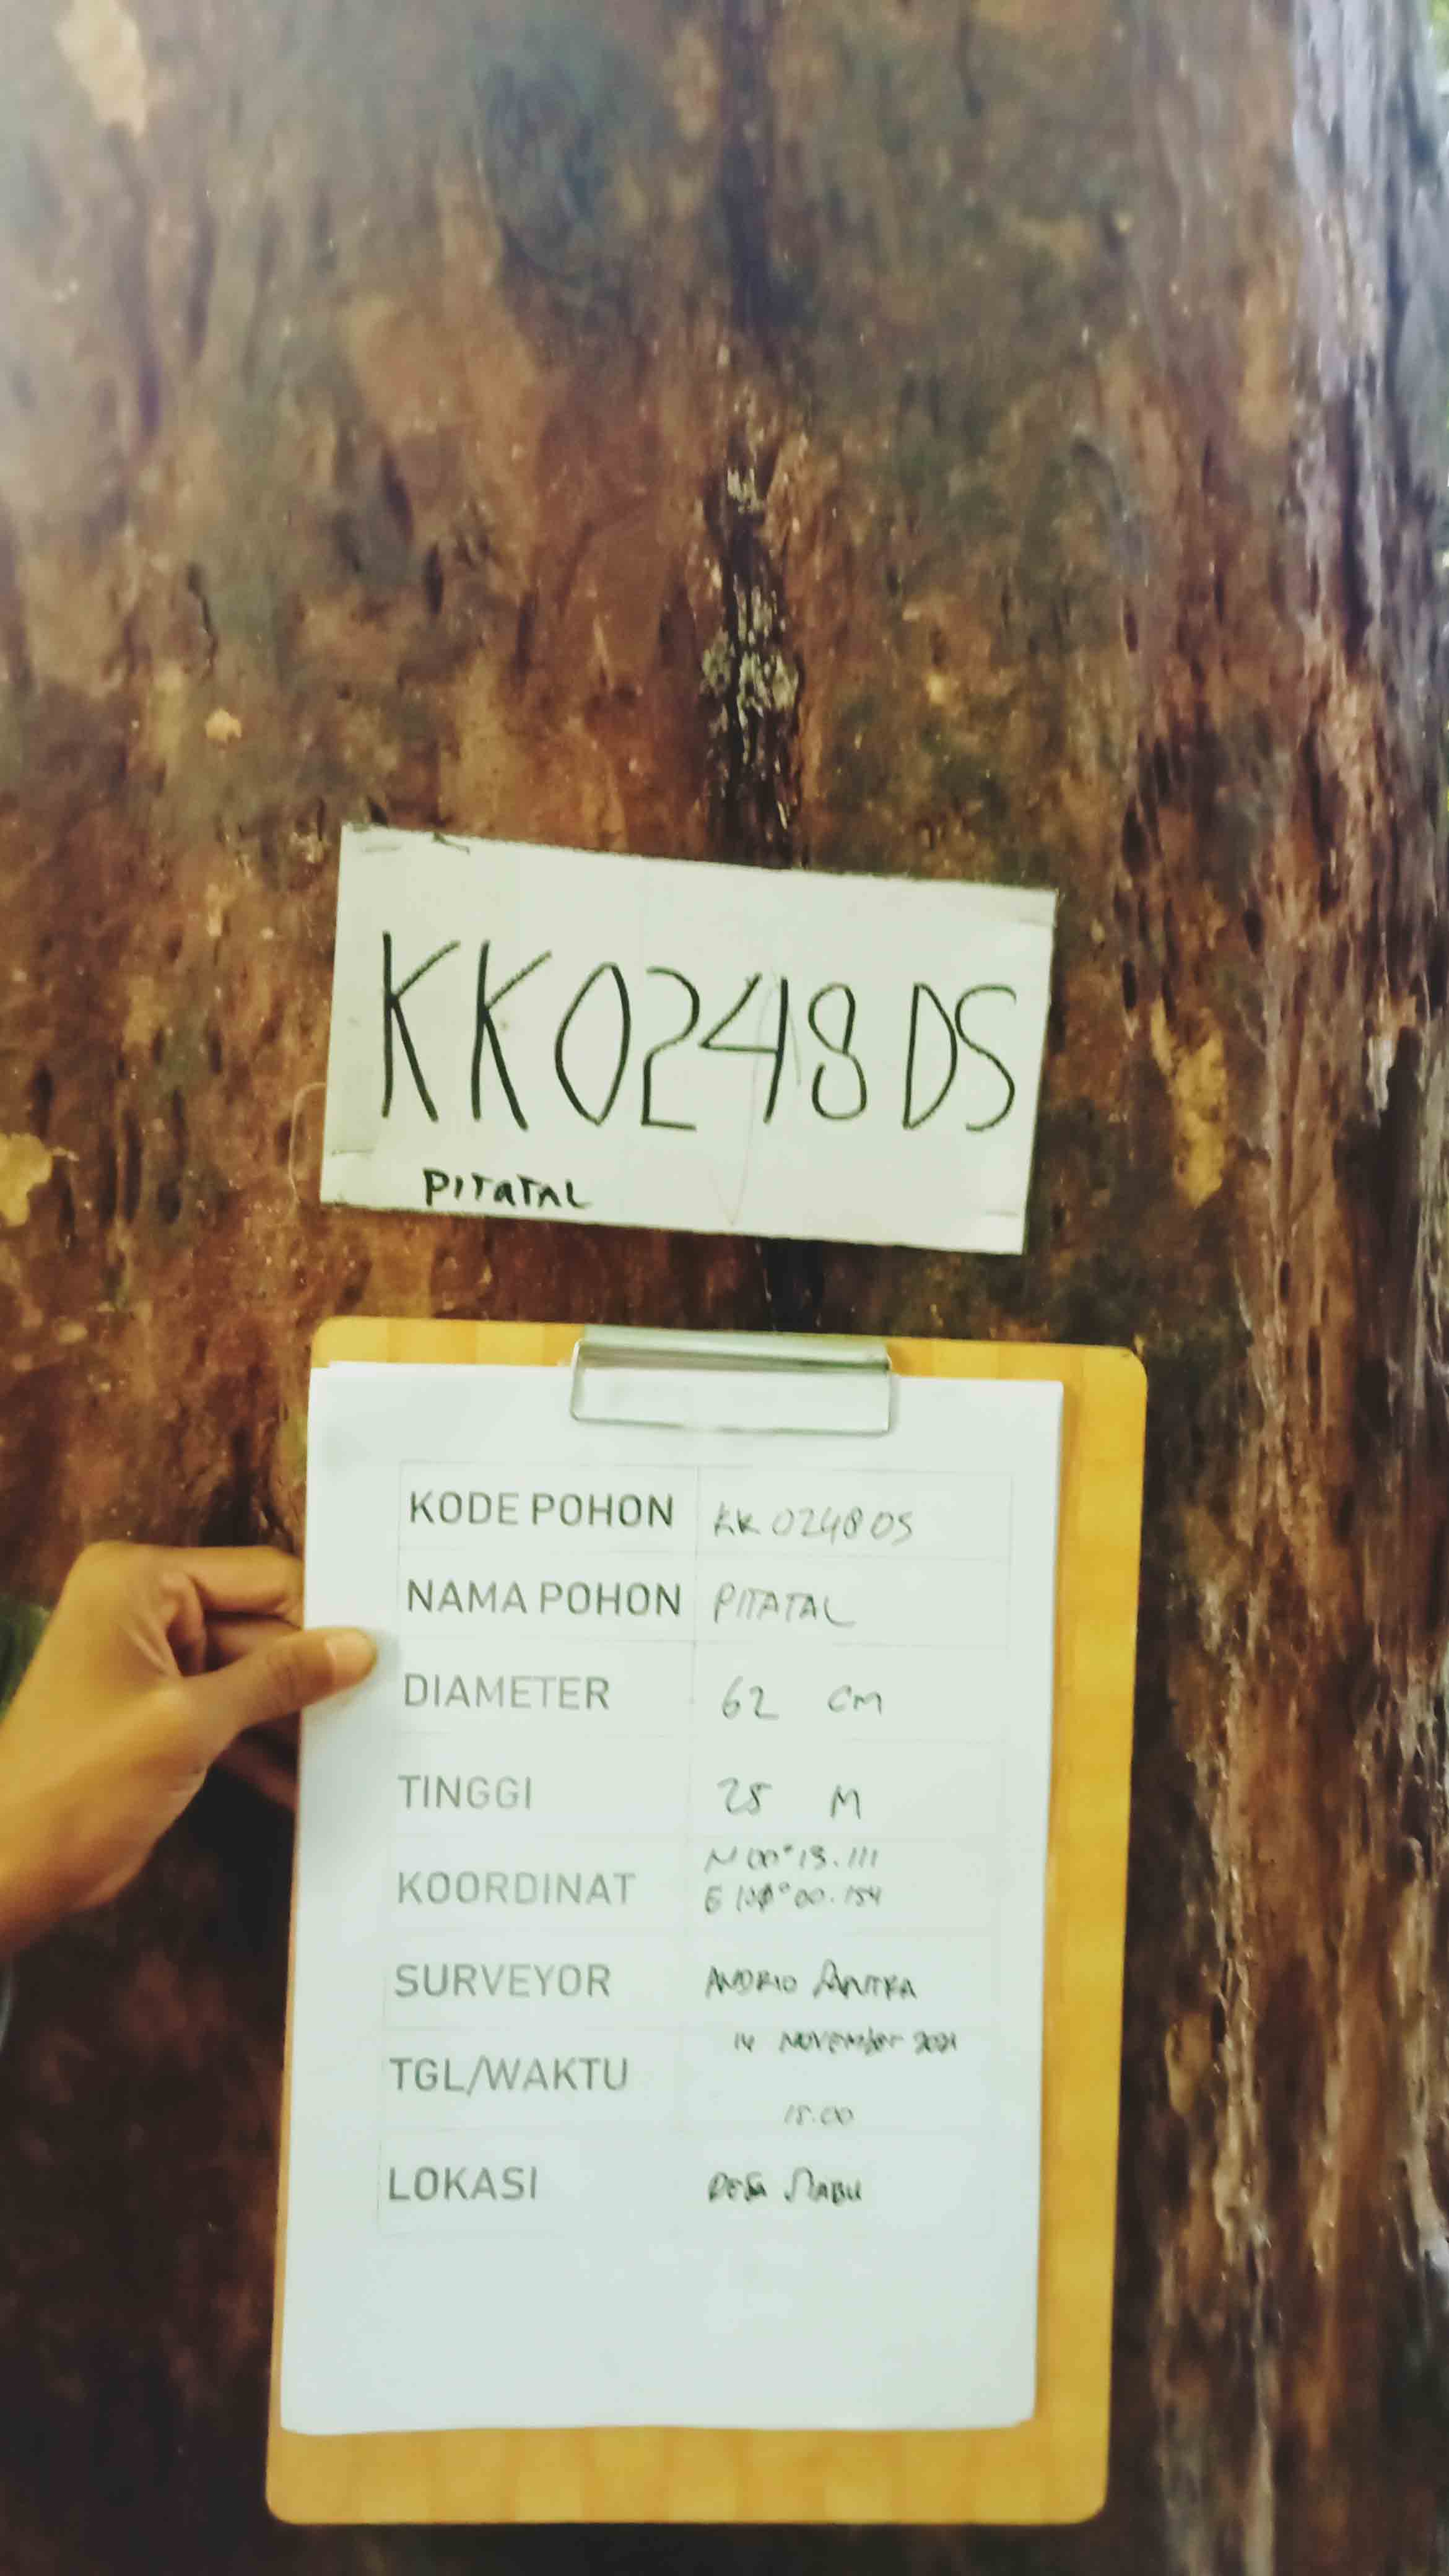 KK0248DS
PITATAL
KODE POHON KK0248DS
NAMA POHON PITATAL
DIAMETER 62 CM
TINGGI 25 M
KOORDINAT N 00°13.111
E 108°00.154
SURVEYOR ANDRIO
TGL/WAKTU 14 NOVEMBER 2021
15.00
LOKASI DESA NABU